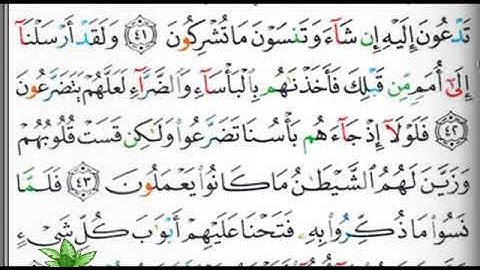 تَدْعُونَ إِلَيْهِ إِن شَآءَ وَتَنسَوْنَ مَا تُشْرِكُونَ ٤١ وَلَقَدْ أَرْسَلْنَآ
إِلَىٰٓ أُمَمٍ مِّن قَبْلِكَ فَأَخَذْنَٰهُم بِالْبَأْسَآءِ وَالضَّرَّآءِ لَعَلَّهُمْ يَتَضَرَّعُونَ
٤٢ فَلَوْلَآ إِذْ جَآءَهُم بَأْسُنَا تَضَرَّعُوا۟ وَلَٰكِن قَسَتْ قُلُوبُهُمْ
وَزَيَّنَ لَهُمُ الشَّيْطَٰنُ مَا كَانُوا۟ يَعْمَلُونَ ٤٣ فَلَمَّا
نَسُوا۟ مَا ذُكِّرُوا۟ بِهِۦ فَتَحْنَا عَلَيْهِمْ أَبْوَٰبَ كُلِّ شَىْءٍ